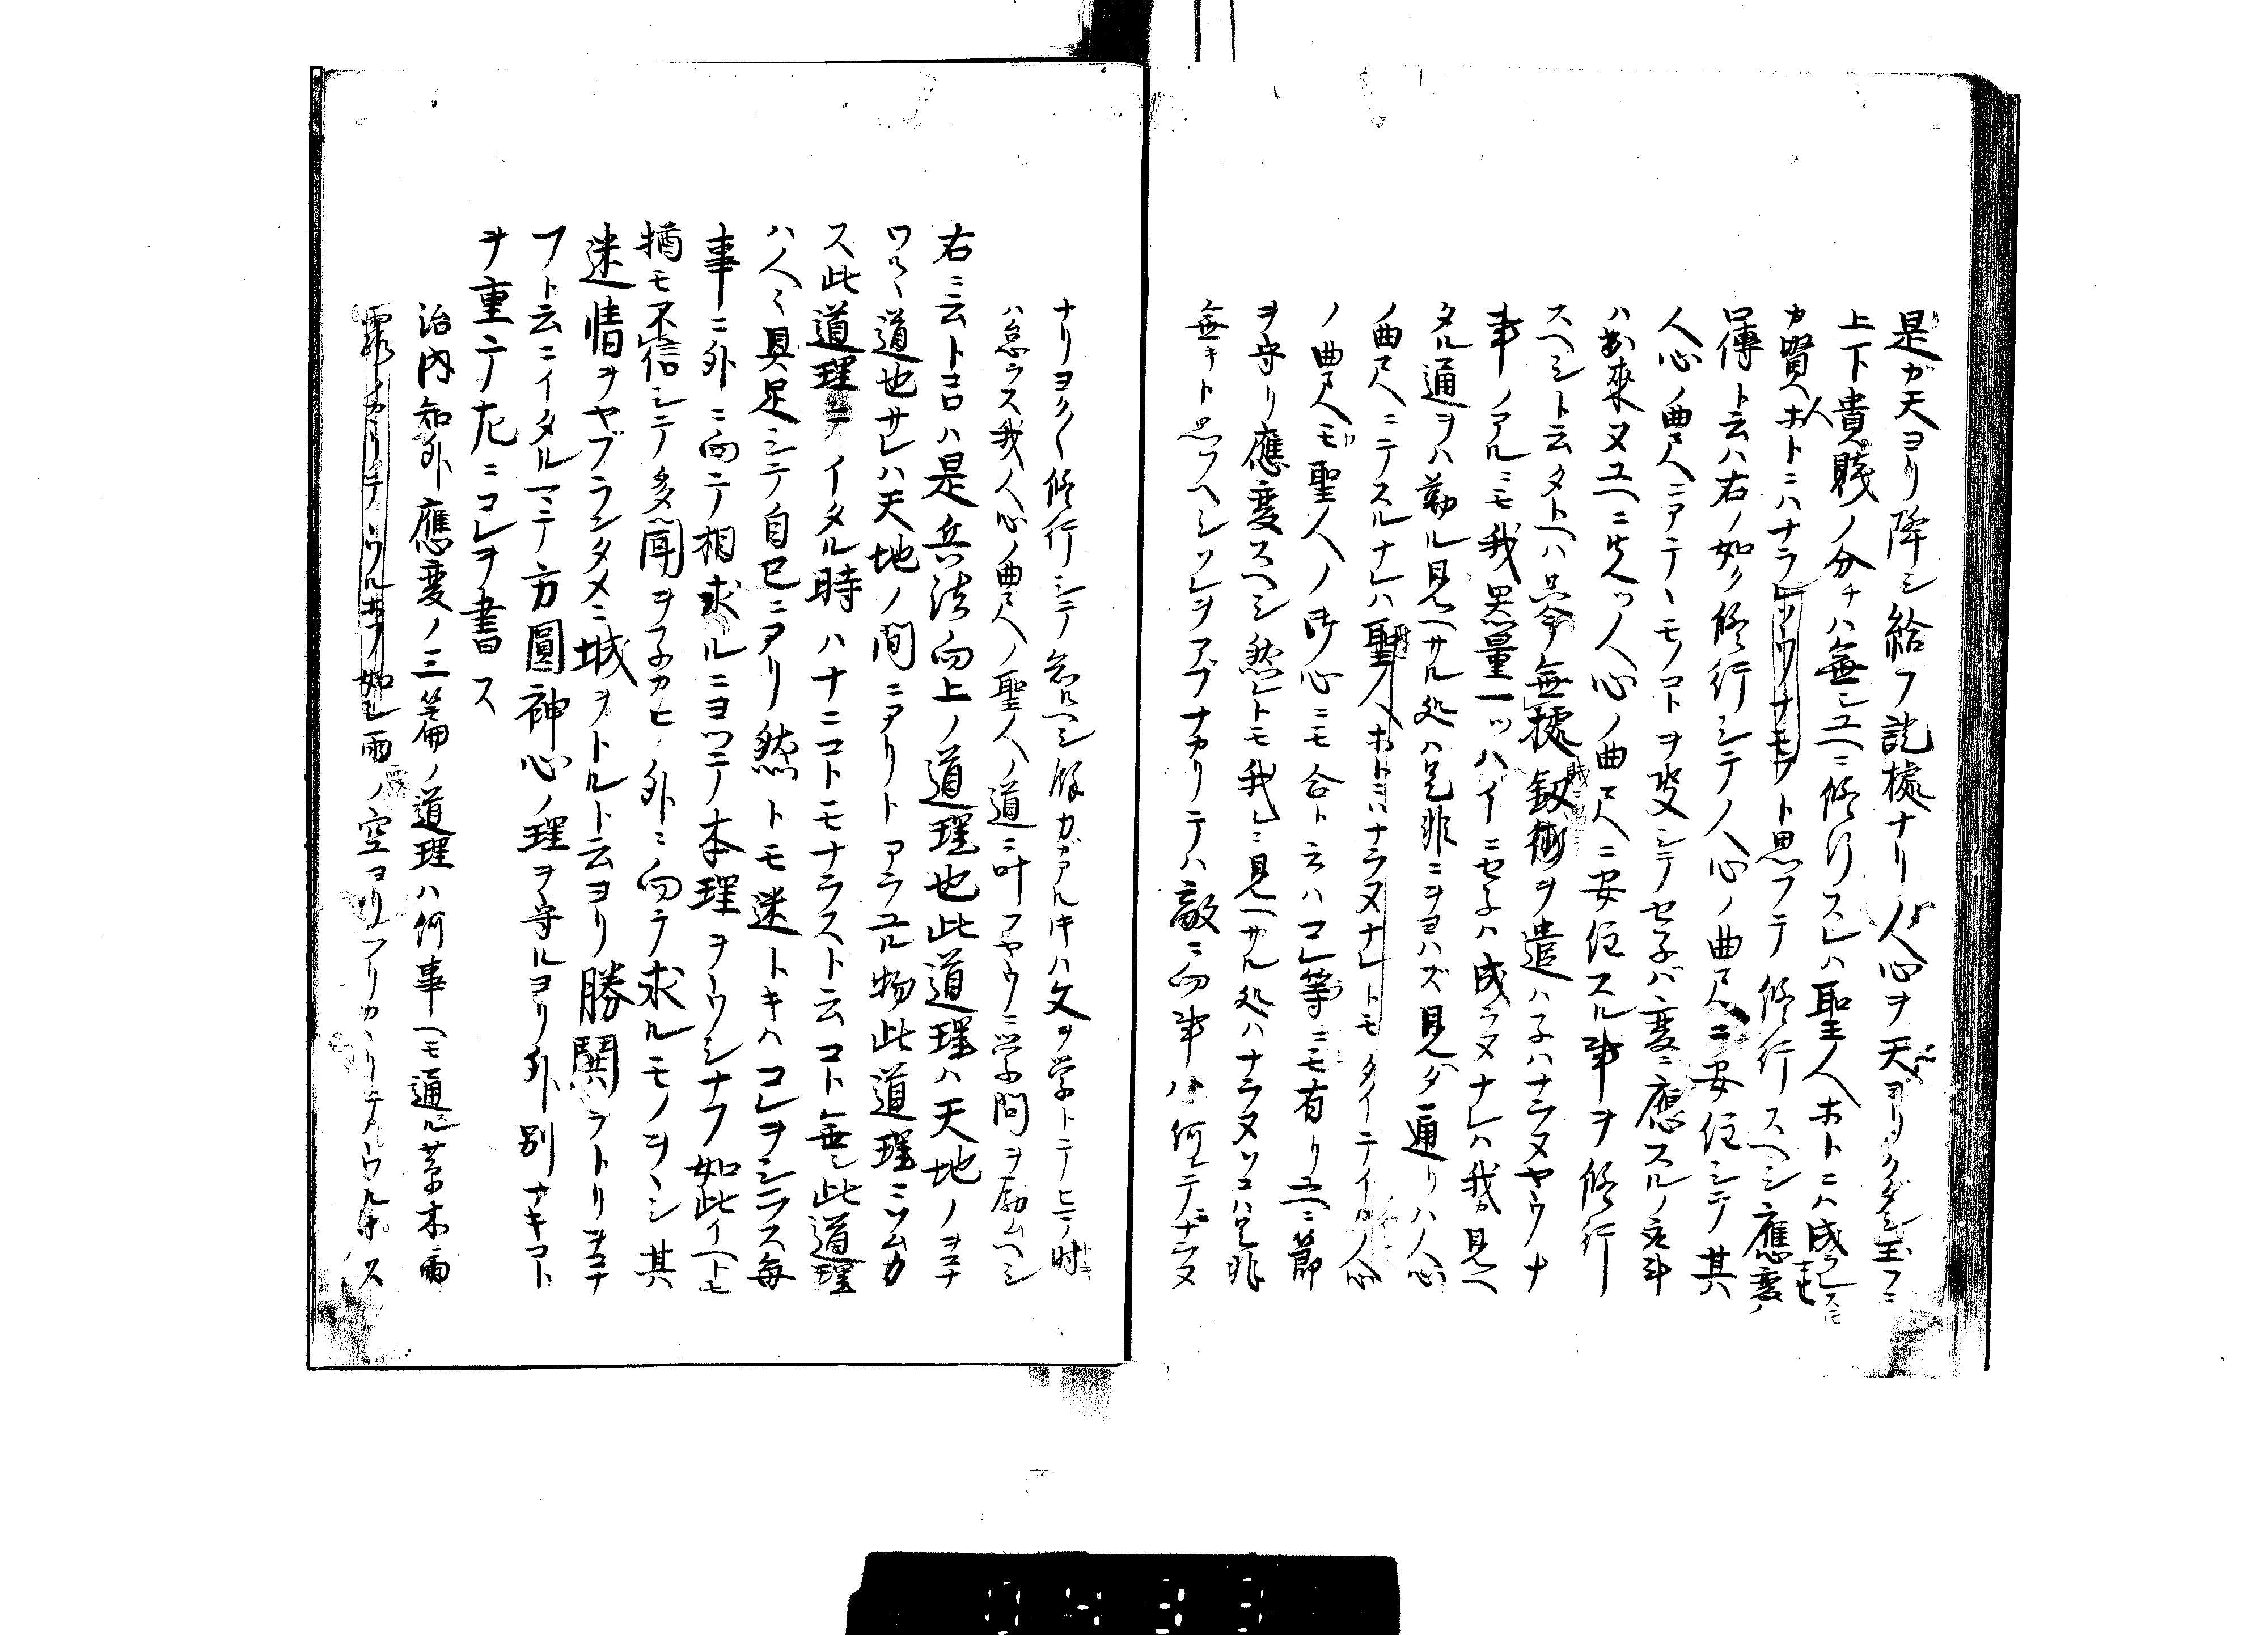 是ガ天ヨリ降シ給フ訛據ナリ人心ヲ天ヨリクダシ玉フニ
上下貴賤ノ分チハ無シユヘニ修行スレハ聖人ホトニハ成
カ賢人ホトニハナラレソウナモノト思フテ修行スヘシ應変ノ
口傳ト云ハ右ノ如ク修行シテ人心ノ曲尺ニ安住シテ其
人心ノ曲尺ニアテヽモノコトヲ決シテセ子バ変ニ應スルノ
ハ出來ヌユヘニ先ツ人心ノ曲尺ニ安住スル事ヲ修行
スヘシト云タトヘハ只今無據釼術ヲ遣ハ子ハナラヌヤウナ
事ノアルニモ我思量一ツハイニセ子ハ成ラヌナレハ我カ見ヘ
タル通ヲハ勤ル見ヘサル処ハ是非ニヲヨハズ見ヘタ通リハ人心
ノ曲尺ニテスルナレハ聖人ホトニハナラヌナレトモタイテイ人心
ノ曲尺モ聖人ノ御心ニモ合ト云ハコレ等ニモ有リユヘニ節
ヲ守リ應変スヘシ然レトモ我レニ見ヘサル処ハナラヌソコハ是非
無キト思フヘシソレヲアブナカリテハ敵ニ向事ハ何テナラヌ
ナリヨク〱修行シテ知ルヘシ餘力ガアル片ハ文ヲ学トテヒマノ時
ハ怠ラス我人心ノ曲尺ノ聖人ノ道ニ叶フヤウニ学問ヲ励ムヘシ
右ニ云トコロハ是兵法向上ノ道理也此道理ハ天地ノヲコナ
ワルヽ道也サレハ天地ノ間ニアリトアラユル物此道理ニソムカ
ス此道理ニイタル時ハナニコトモナラスト云コト無シ此道理
ハ人々具足シテ自己ニアリ然トモ迷トキハコレヲシラス毎
事ニ外ニ向テ相求ルニヨツテ本理ヲウシナフ如此イヘトモ
猶モ不信シテ多聞ヲ子カヒ外ニ向テ求ルモノヲヽシ其
迷情ヲヤブランタメニ城ヲトルト云ヨリ勝鬨ヲトリヲコナ
フト云ニイタルマテ方圓神心ノ理ヲ守ルヨリ外別ナキコト
ヲ重テ尤ニコレヲ書ス
治内知外應変ノ三篇ノ道理ハ何事ヘモ通ル草木ニ雨
露ノカヽリテウルホフノ如シ雨ノ空ヨリフリカヽリテウルホス